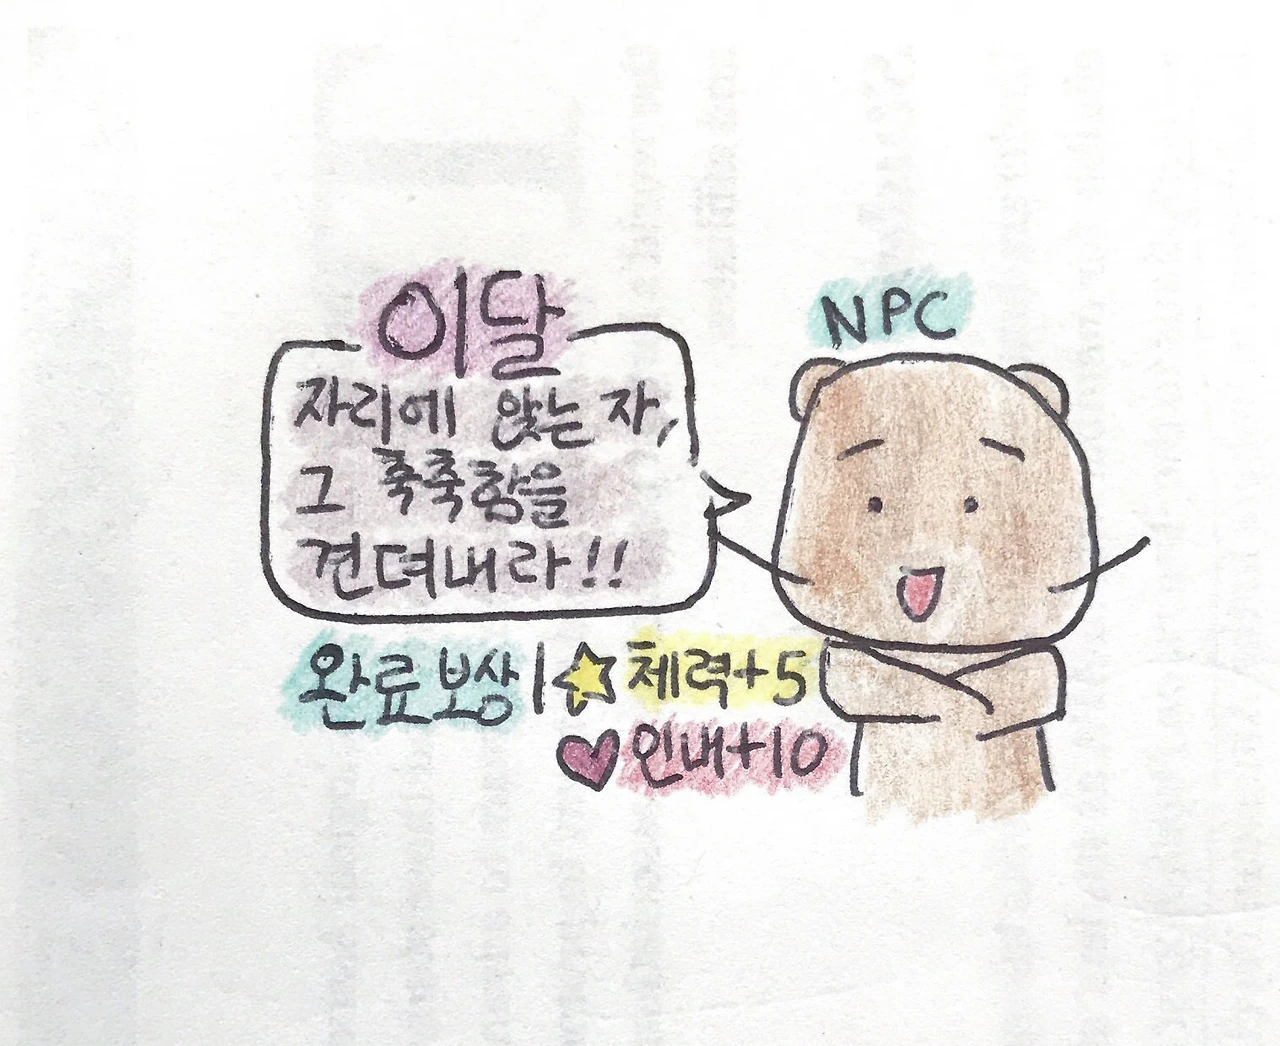 NPC
이달
자리에 앉는 자,
그 축축함을
견뎌내라!!
완료 보상 | ☆ 체력+5
♥ 인내+10